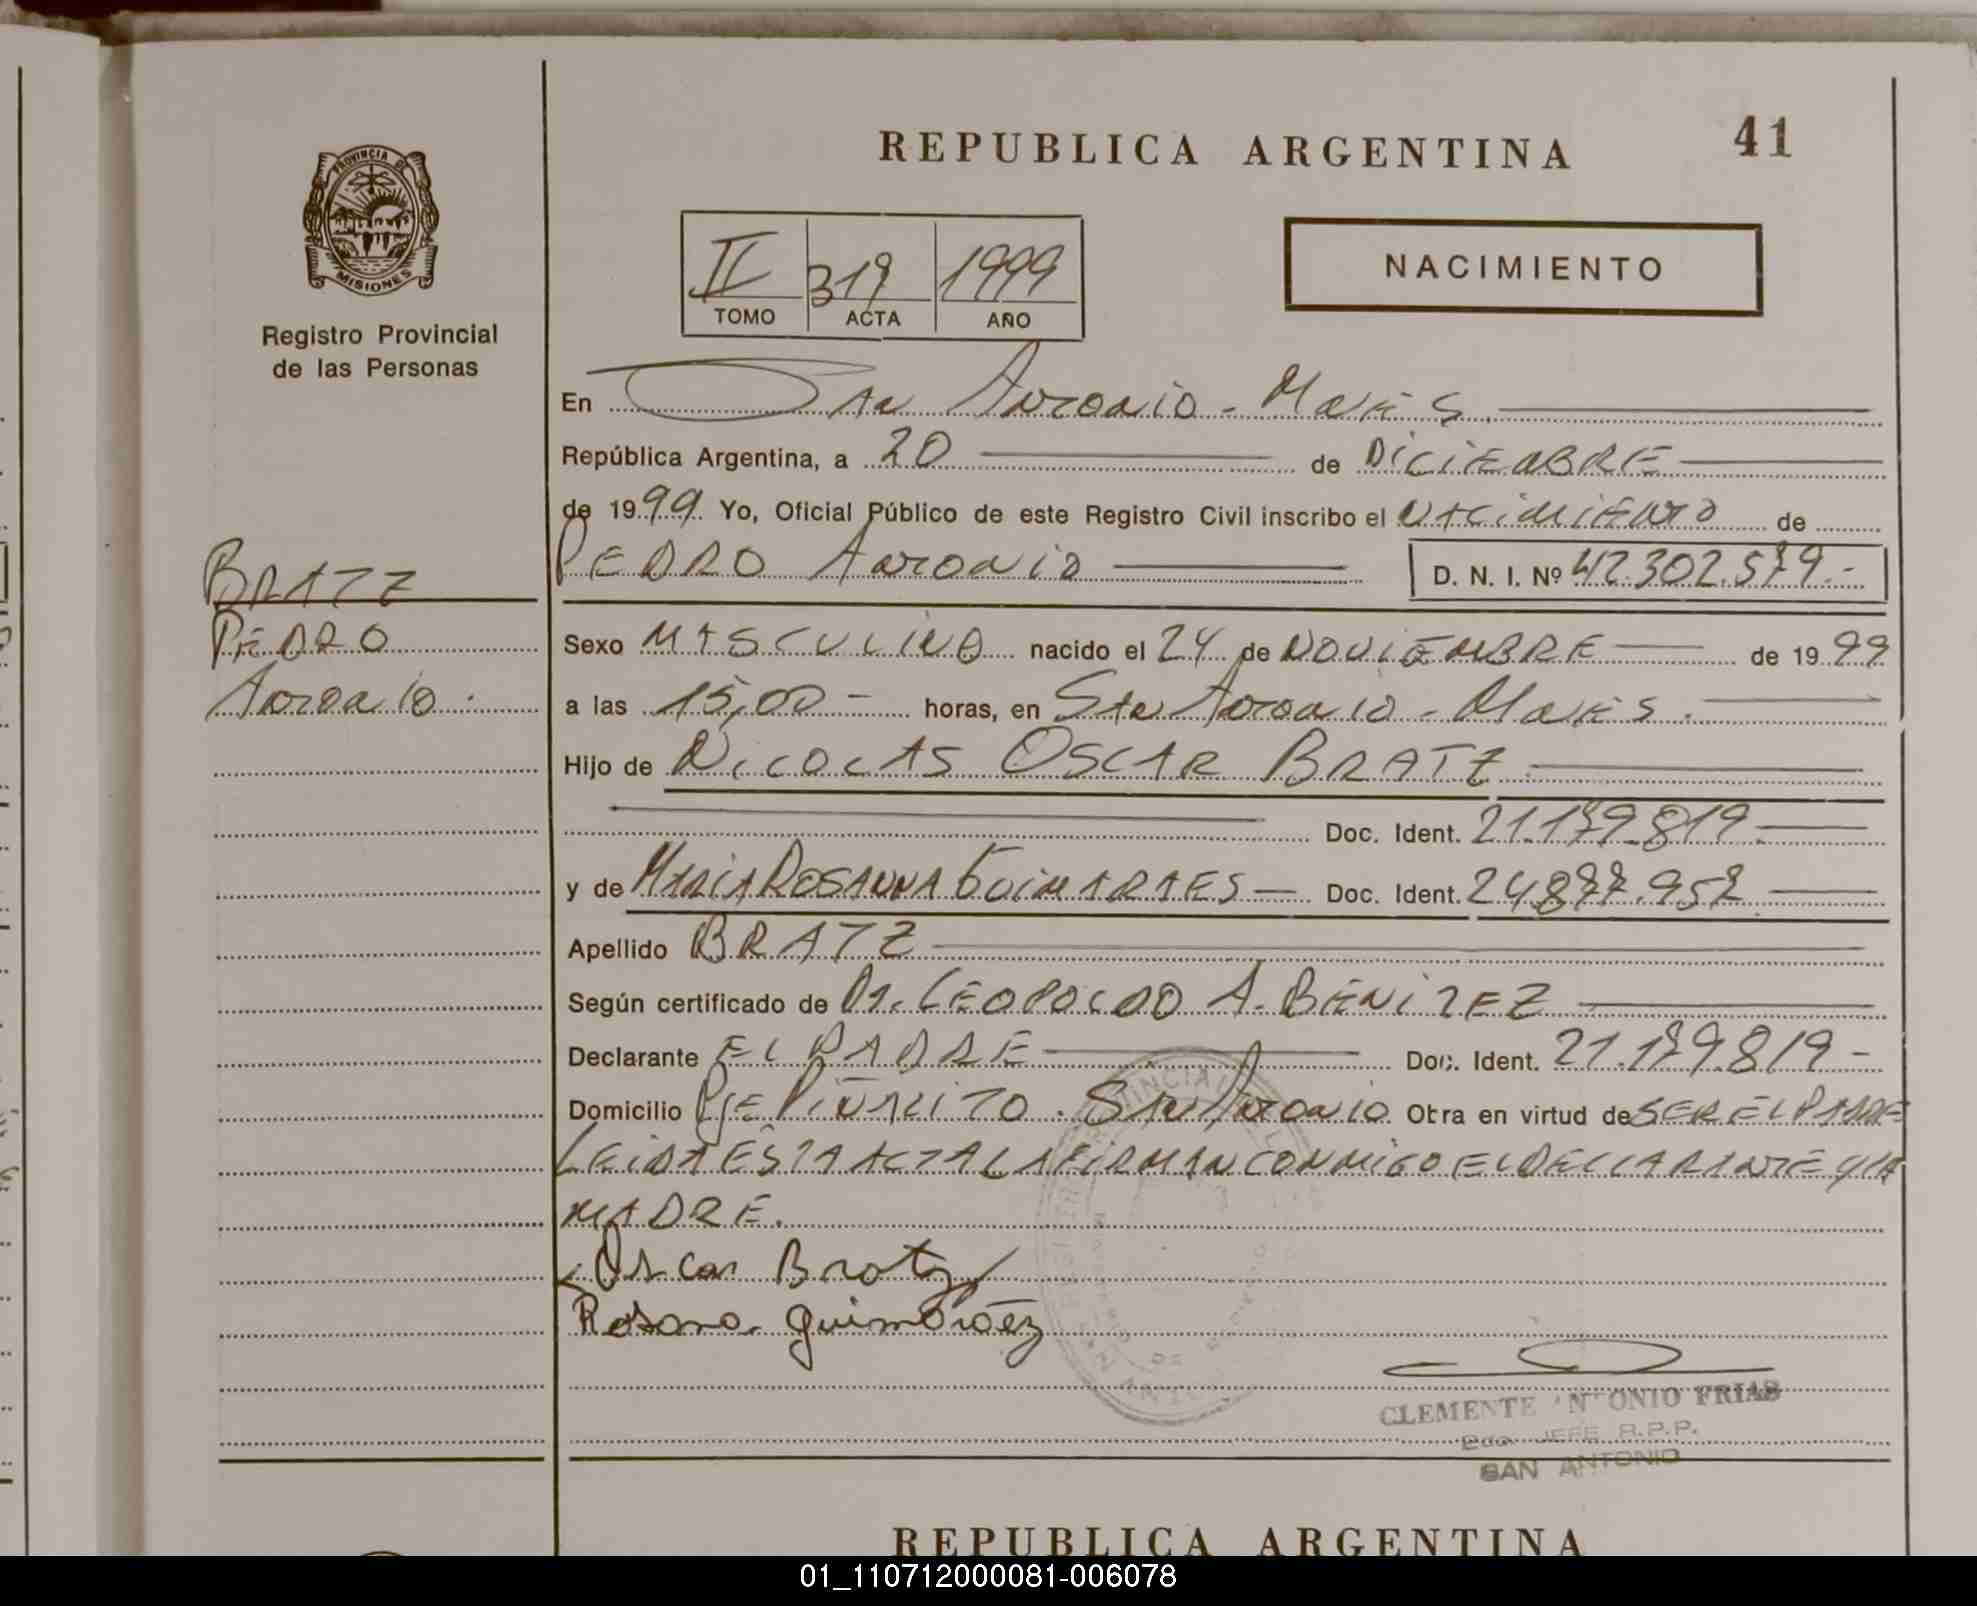 REPUBLICA ARGENTINA
41
PROVINCIA DE
MISIONES
Registro Provincial
de las Personas
II 319 1999
TOMO ACTA AÑO
NACIMIENTO
En San Antonio - Mnes.
República Argentina, a 20 de DICIEMBRE
de 1999 Yo, Oficial Público de este Registro Civil inscribo el NACIMIENTO de
PEDRO Antonio D. N. I. Nº 42.302.579.-
BRATZ
PEDRO
Antonio.
Sexo MASCULINO nacido el 24 de NOVIEMBRE de 1999
a las 15,00 - horas, en San Antonio - Mnes.
Hijo de NICOLAS OSCAR BRATZ
Doc. Ident. 21.179.819
y de MARIA ROSANNA GUIMARAES Doc. Ident. 24.877.952
Apellido BRATZ
Según certificado de Dr. LEOPOLDO A. BENITEZ
Declarante EL PADRE Doc. Ident. 21.179.819 -
Domicilio Pje PIÑALITO. San Antonio Obra en virtud de SER EL PADRE
LEIDA ESTA ACTA LA FIRMAN CONMIGO EL DECLARANTE Y LA
MADRE.
Oscar Bratz
Rosana guimarãez
CLEMENTE ANTONIO FRIAS
2do. JEFE R.P.P.
SAN ANTONIO
REPUBLICA ARGENTINA
01_110712000081-006078